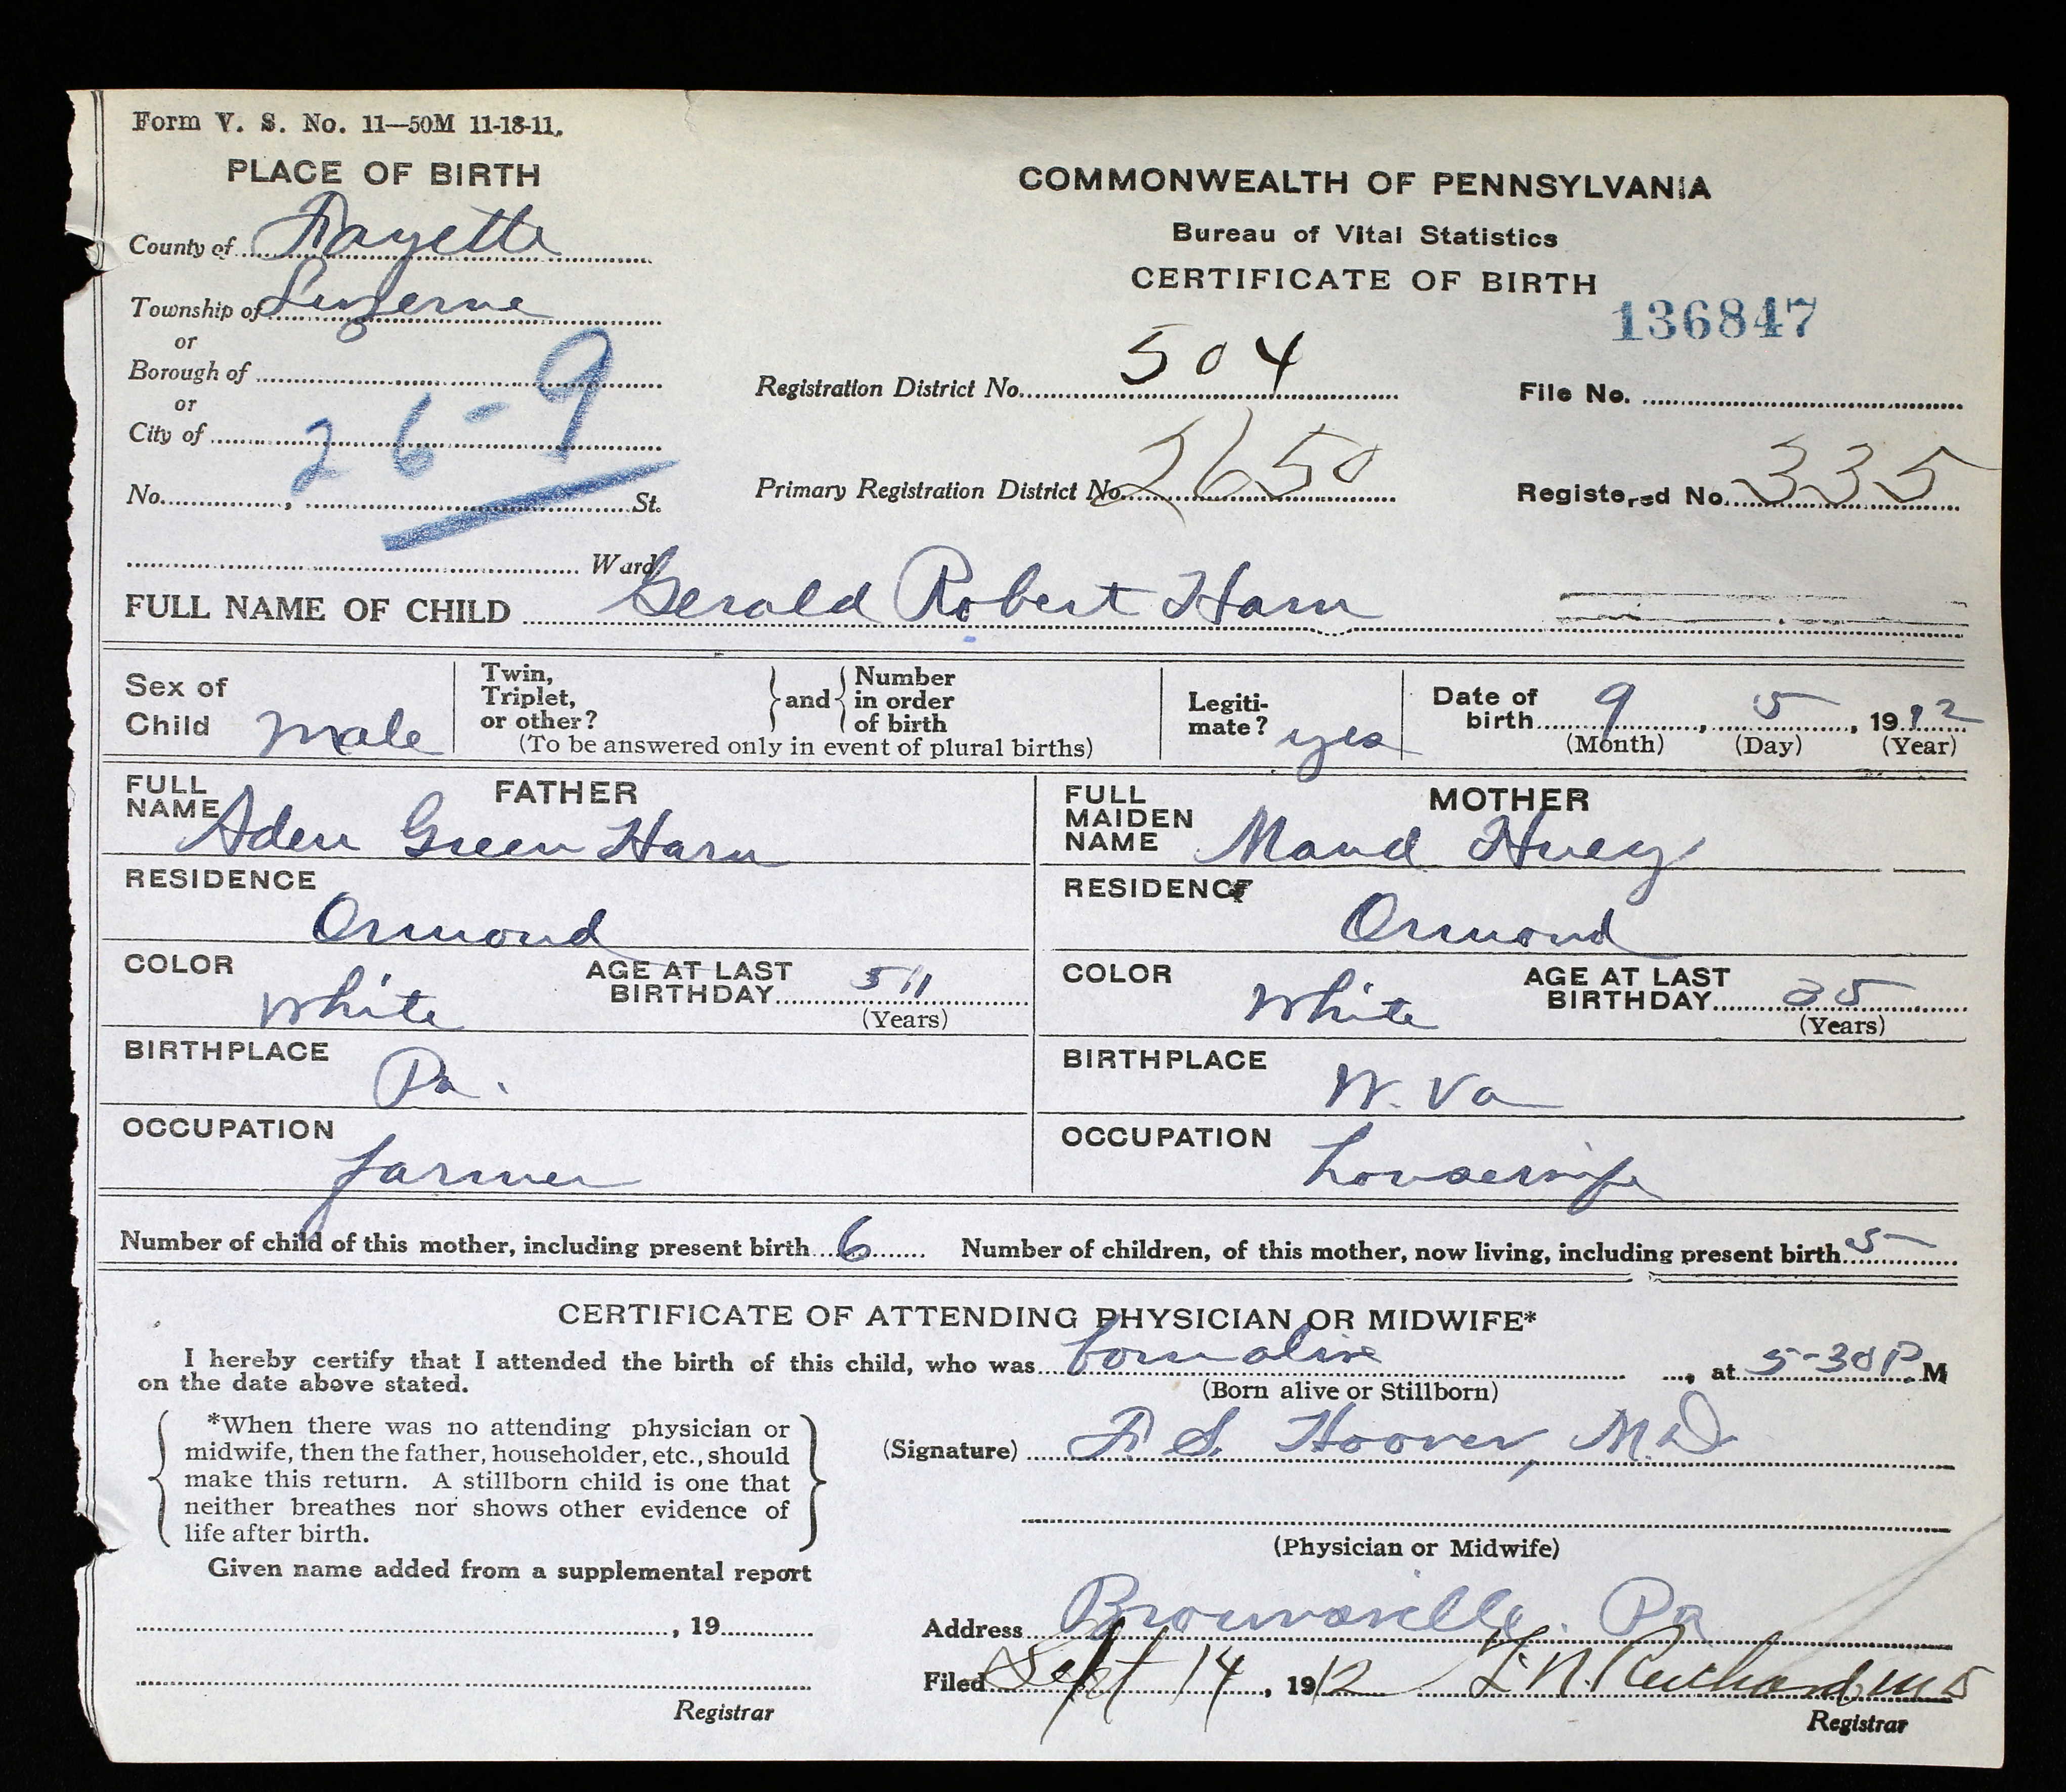 Form V. S. No. 11—50M 11-18-11.
PLACE OF BIRTH
County of Fayette
Township of Luzerne
or
Borough of
or
City of
26-9
No. , St.
Ward
COMMONWEALTH OF PENNSYLVANIA
Bureau of Vital Statistics
CERTIFICATE OF BIRTH
136847
Registration District No. 504
File No.
Primary Registration District No. 2650
Registered No. 335
FULL NAME OF CHILD Gerald Robert Harn
Sex of Child male
Twin, Triplet, or other? } and { Number in order of birth
(To be answered only in event of plural births)
Legiti-mate? yes
Date of birth 9, 5, 1912
(Month) (Day) (Year)
FATHER
FULL NAME Aden Green Harn
RESIDENCE
Ormond
COLOR White
AGE AT LAST BIRTHDAY
(Years)
BIRTHPLACE
Pa.
OCCUPATION
farmer
MOTHER
FULL MAIDEN NAME Maud Huey
RESIDENCE
Ormond
COLOR White
AGE AT LAST BIRTHDAY 35
(Years)
BIRTHPLACE
W. Va
OCCUPATION
housewife
Number of child of this mother, including present birth 6
Number of children, of this mother, now living, including present birth 5
CERTIFICATE OF ATTENDING PHYSICIAN OR MIDWIFE*
I hereby certify that I attended the birth of this child, who was born alive, at 5-30 P.M
on the date above stated.
(Born alive or Stillborn)
*When there was no attending physician or
midwife, then the father, householder, etc., should
make this return. A stillborn child is one that
neither breathes nor shows other evidence of
life after birth.
(Signature) F. S. Hoover, M.D.
(Physician or Midwife)
Given name added from a supplemental report
, 19
Registrar
Address Brownsville, Pa
Filed Sept 14, 1912
Registrar